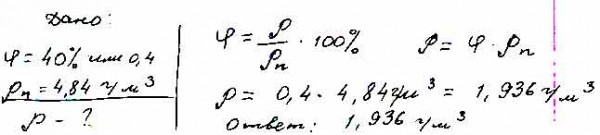 Дано:
φ = 40% или 0,4
ρп = 4,84 г/м³
ρ - ?
φ = ρ/ρп · 100%     ρ = φ · ρп
ρ = 0,4 · 4,84 г/м³ = 1,936 г/м³
Ответ: 1,936 г/м³